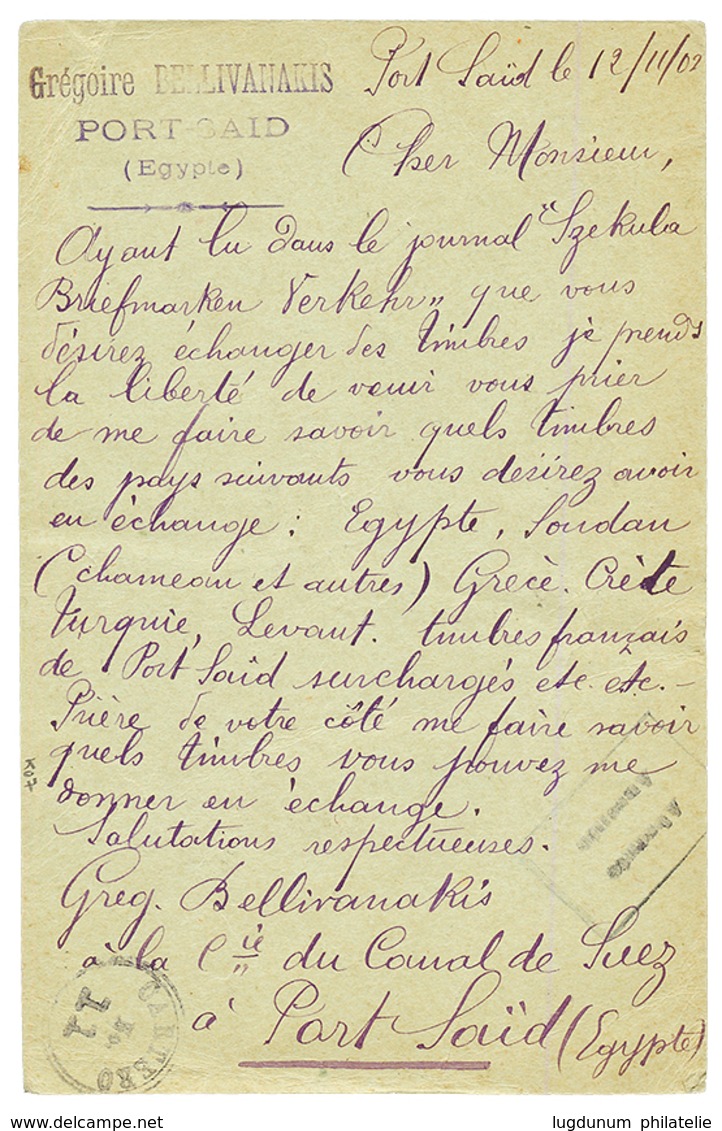 Grégoire BELLIVANAKIS
PORT-SAID
(Egypte)
Port Saïd le 12/11/02
Cher Monsieur,
Ayant lu dans le journal "Szekula
Briefmarken Verkehr„ que vous
désirez échanger des timbres je prends
la liberté de venir vous prier
de me faire savoir quels timbres
des pays suivants vous désirez avoir
en échange : Egypte, Soudan
(chameau et autres) Grèce. Crète
Turquie, Levant. timbres français
de Port Saïd surchargés etc. etc. -
Prière de votre côté me faire savoir
quels timbres vous pouvez me
donner en échange.
Salutations respectueuses.
Greg. Bellivanakis
à la Cie du Canal de Suez
à Port Saïd (Egypte)
K07
CARTERO
No.
11
lugdunum philatelie